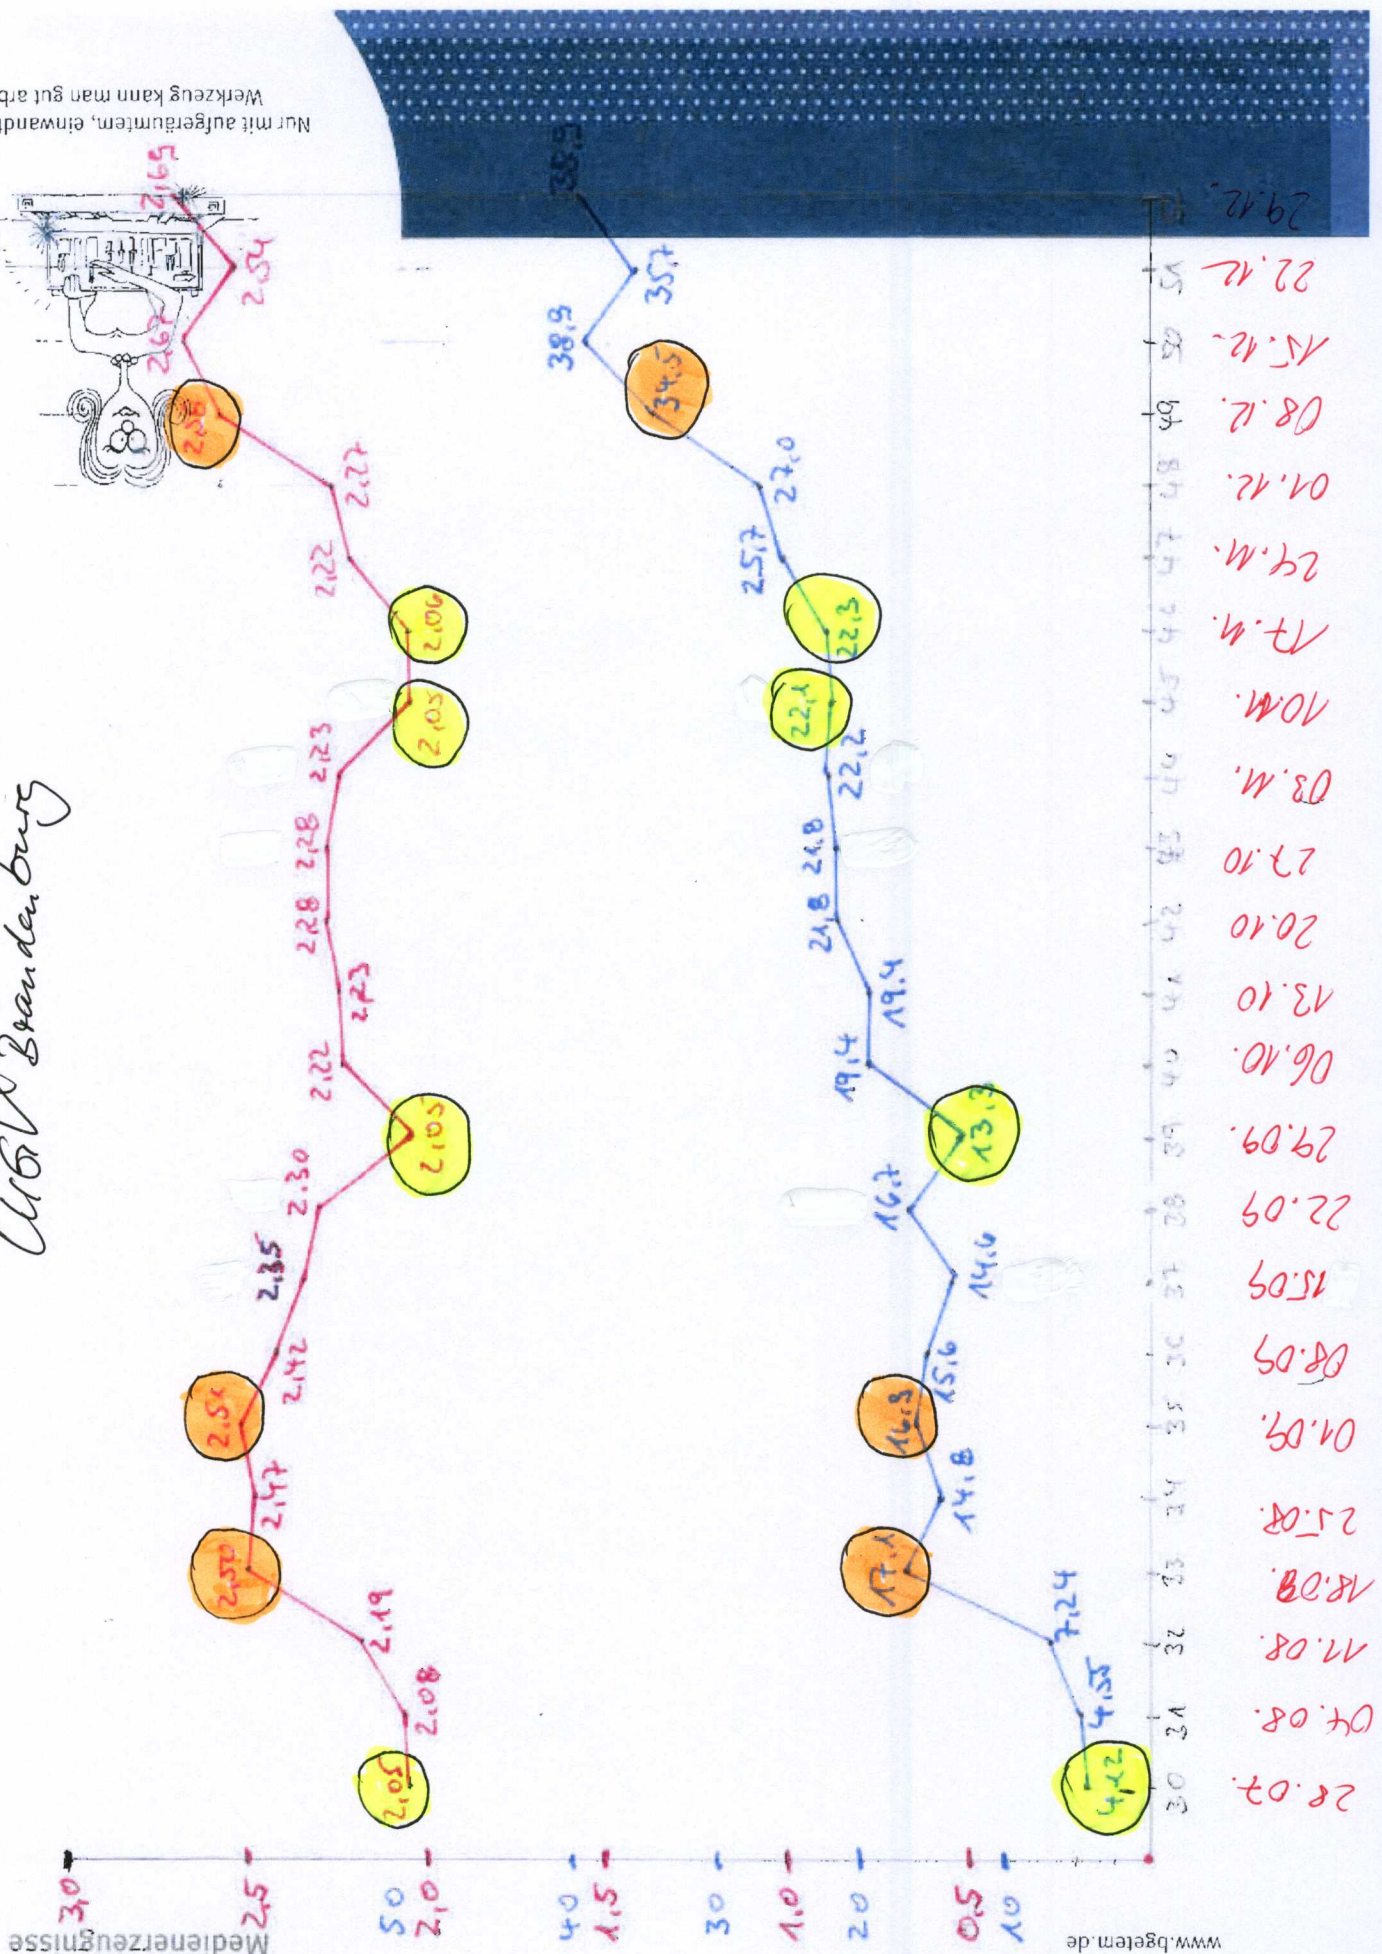 Nur mit aufgeräumtem, einwandf
Werkzeug kann man gut arb
Brandenburg
Medienerzeugnisse
www.bgetem.de
3,0
2,5
2,0
1.5
1.0
0.5
50
40
30
20
10
2,05
2.08
2.19
2,50
2.47
2.42
2.35
2.30
2,05
2,22
2,23
2,28
2,28
2,23
2,05
2,06
2,22
2,27
2,58
2,67
2,54
2,69
4,12
4,55
7,24
17,1
14,8
16,9
15,6
14,6
16,7
13,3
19,4
19,4
21,8
21,8
22,2
22,1
22,3
25,7
27,0
34,5
38,9
35,7
38,9
30
31
32
33
34
35
36
37
38
39
40
41
42
43
44
45
46
47
48
49
50
51
28.07.
04.08.
11.08.
18.08.
25.08.
01.09.
08.09
15.09
22.09
29.09.
06.10.
13.10
20.10
27.10
03.11.
10.11.
17.11.
24.11.
01.12.
08.12.
15.12.
22.12
29.12.